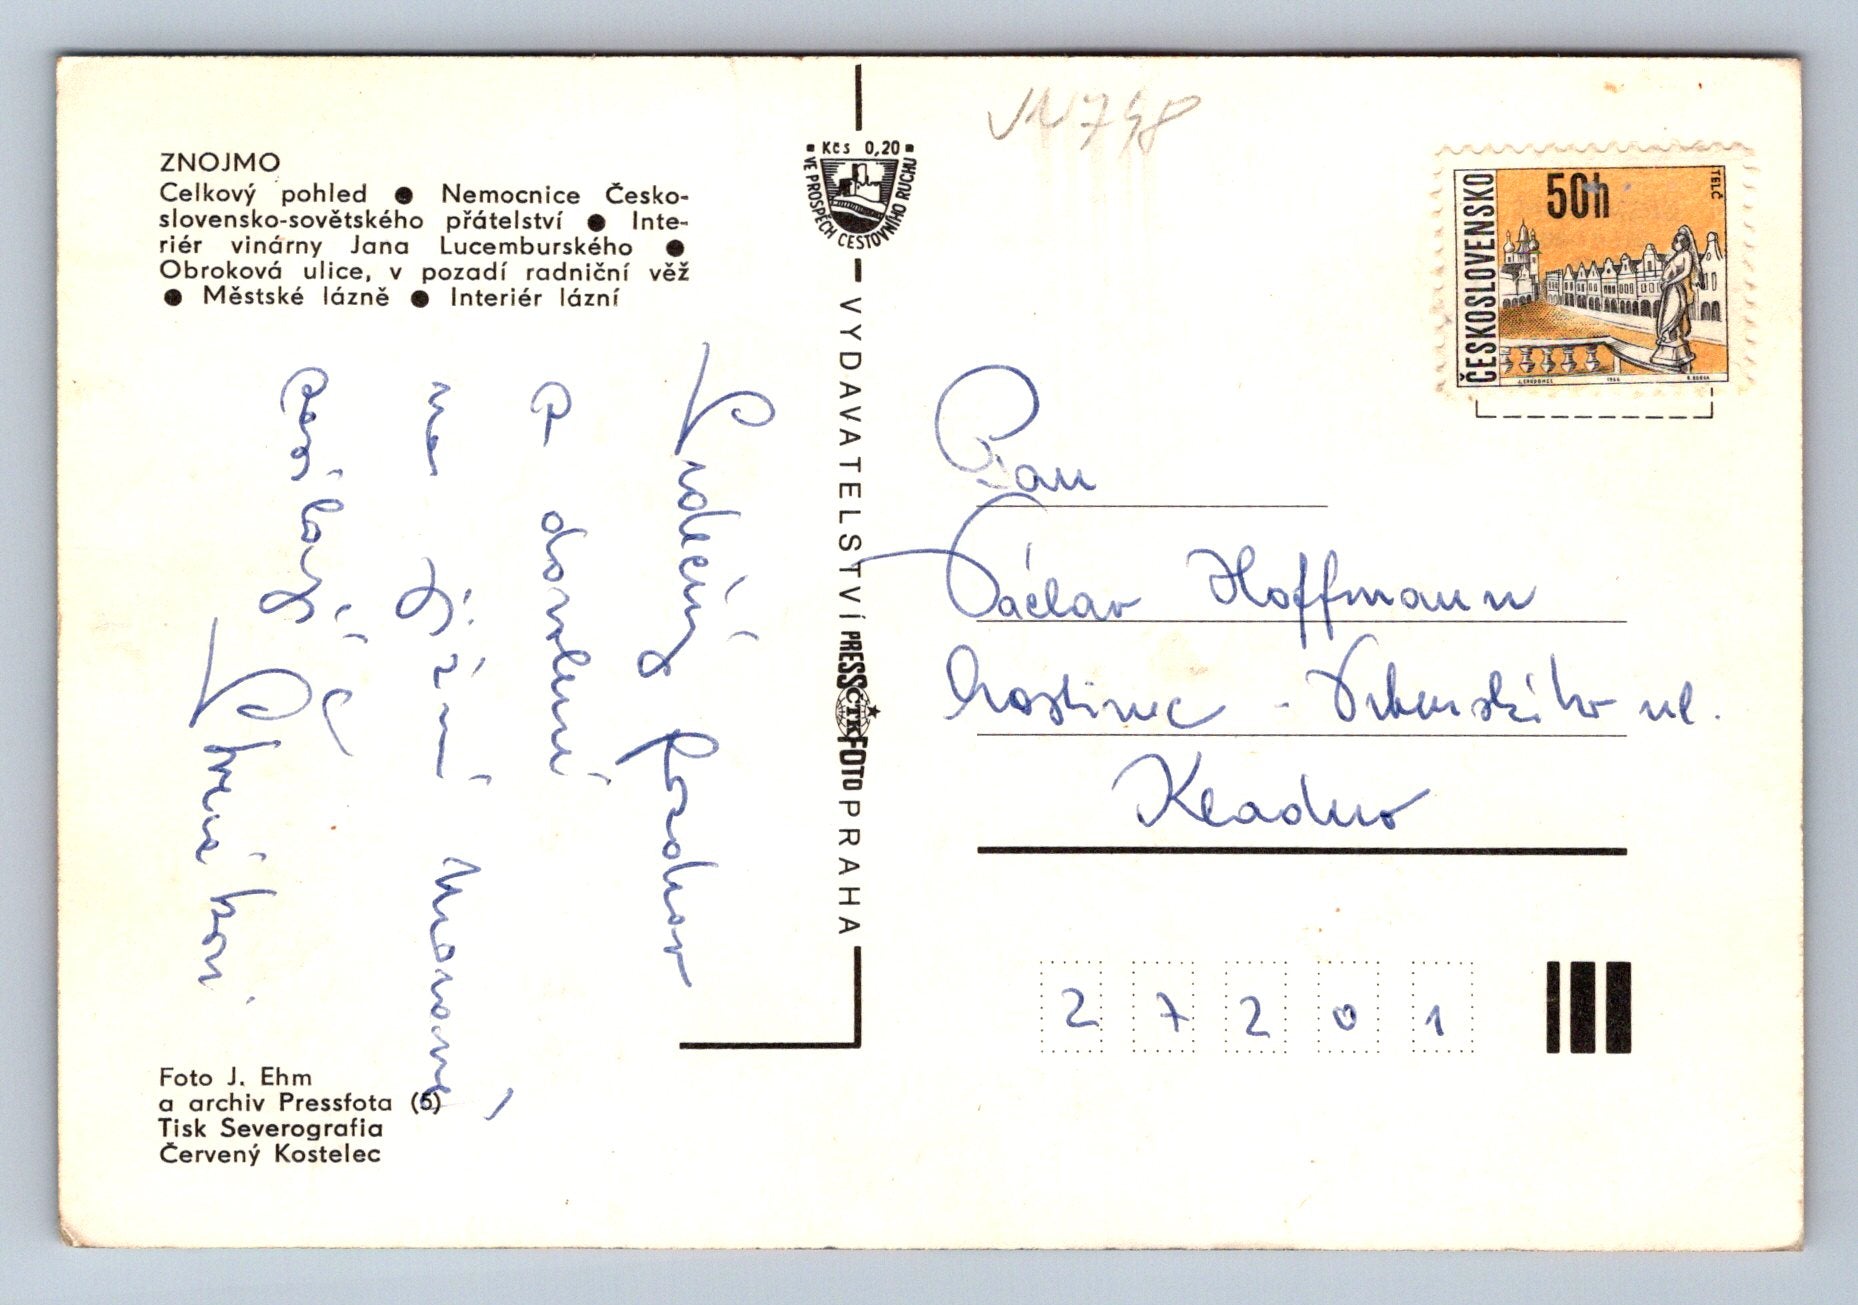 ZNOJMO
Celkový pohled ● Nemocnice Česko-
slovensko-sovětského přátelství ● Inte-
riér vinárny Jana Lucemburského ●
Obroková ulice, v pozadí radniční věž
● Městské lázně ● Interiér lázní
Srdečný pozdrav
z dovolené
na jižní Moravě
posílají
Foto J. Ehm
a archiv Pressfota (5)
Tisk Severografia
Červený Kostelec
Kčs 0,20
VE PROSPĚCH CESTOVNÍHO RUCHU
VYDAVATELSTVÍ PRESSFOTO PRAHA
ČTK
ČESKOSLOVENSKO
50h
TELČ
Pan
Václav Hoffmann
hostinec - Vrbenského ul.
Kladno
27201